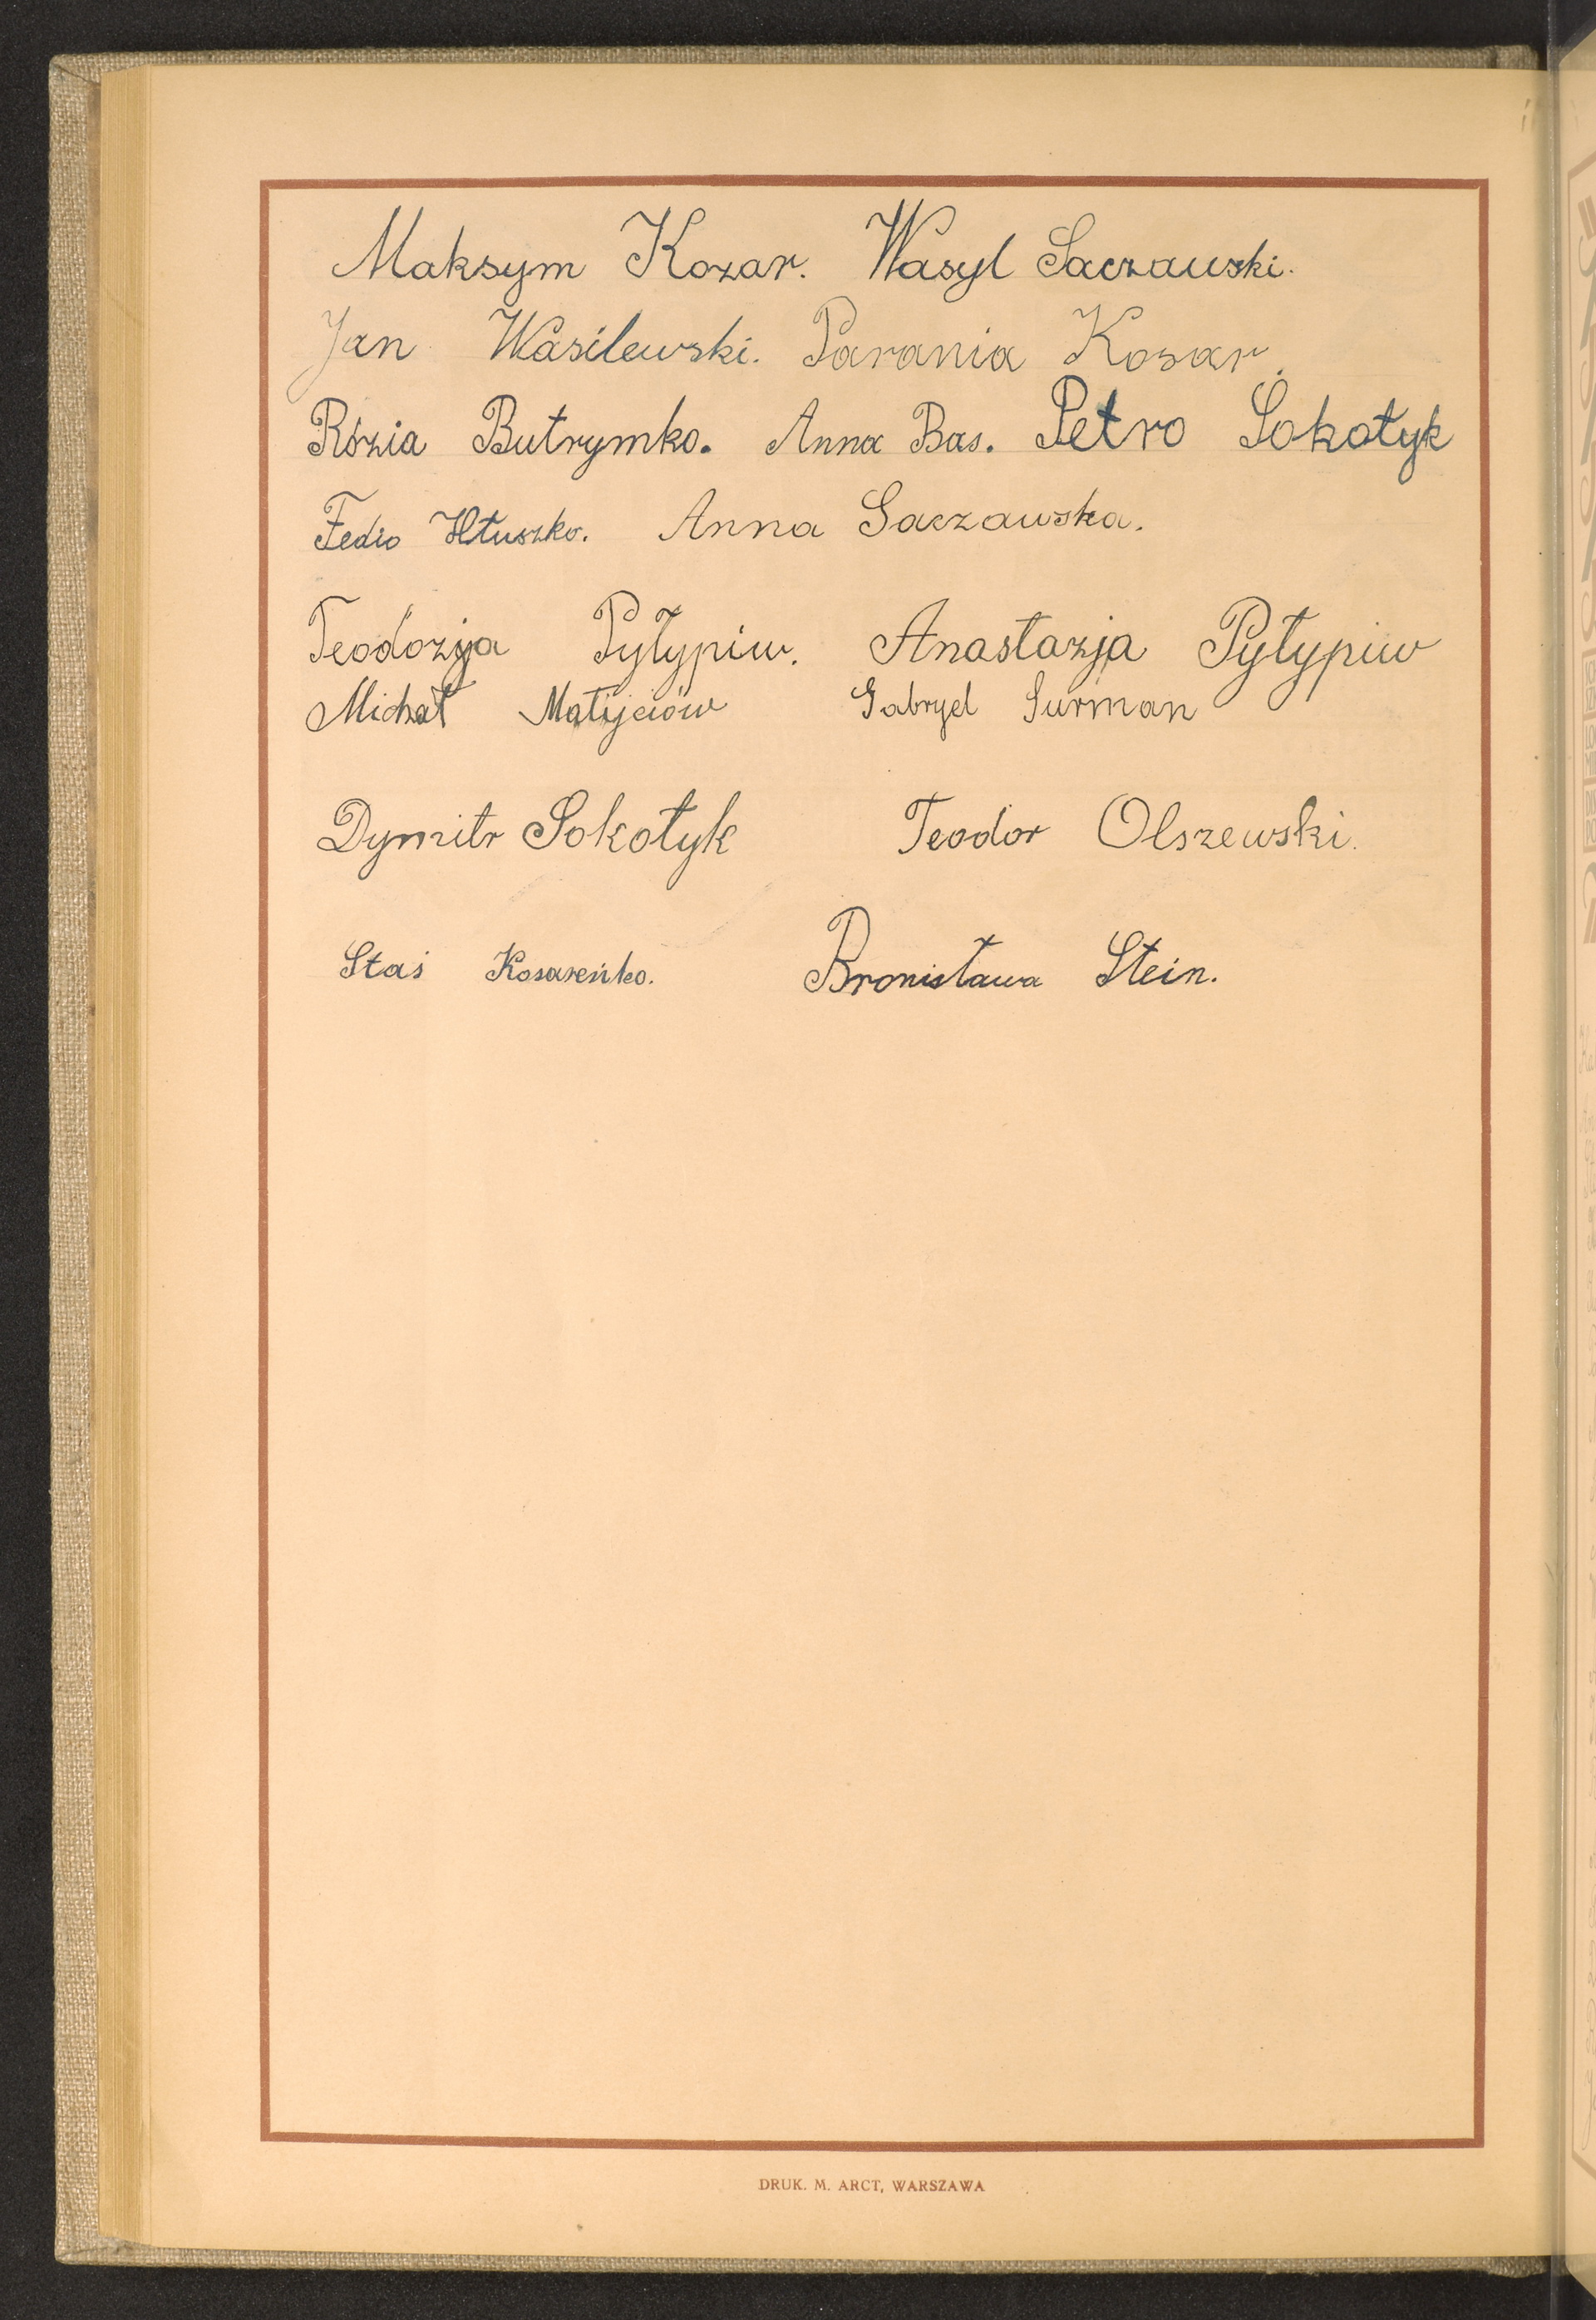 Maksym Kozar. Wasyl Saczawski.
Jan Wasilewski. Parania Kosar.
Rózia Butrymko. Anna Bas. Petro Sokołyk
Fedio Hłuszko. Anna Saczawska.
Teodozja Pyłypiw. Anastazja Pyłypiw
Michał Matijciów Gabryel Surman
Dymitr Sokołyk Teodor Olszewski.
Staś Kosareńko. Bronisława Stein.
DRUK. M. ARCT, WARSZAWA